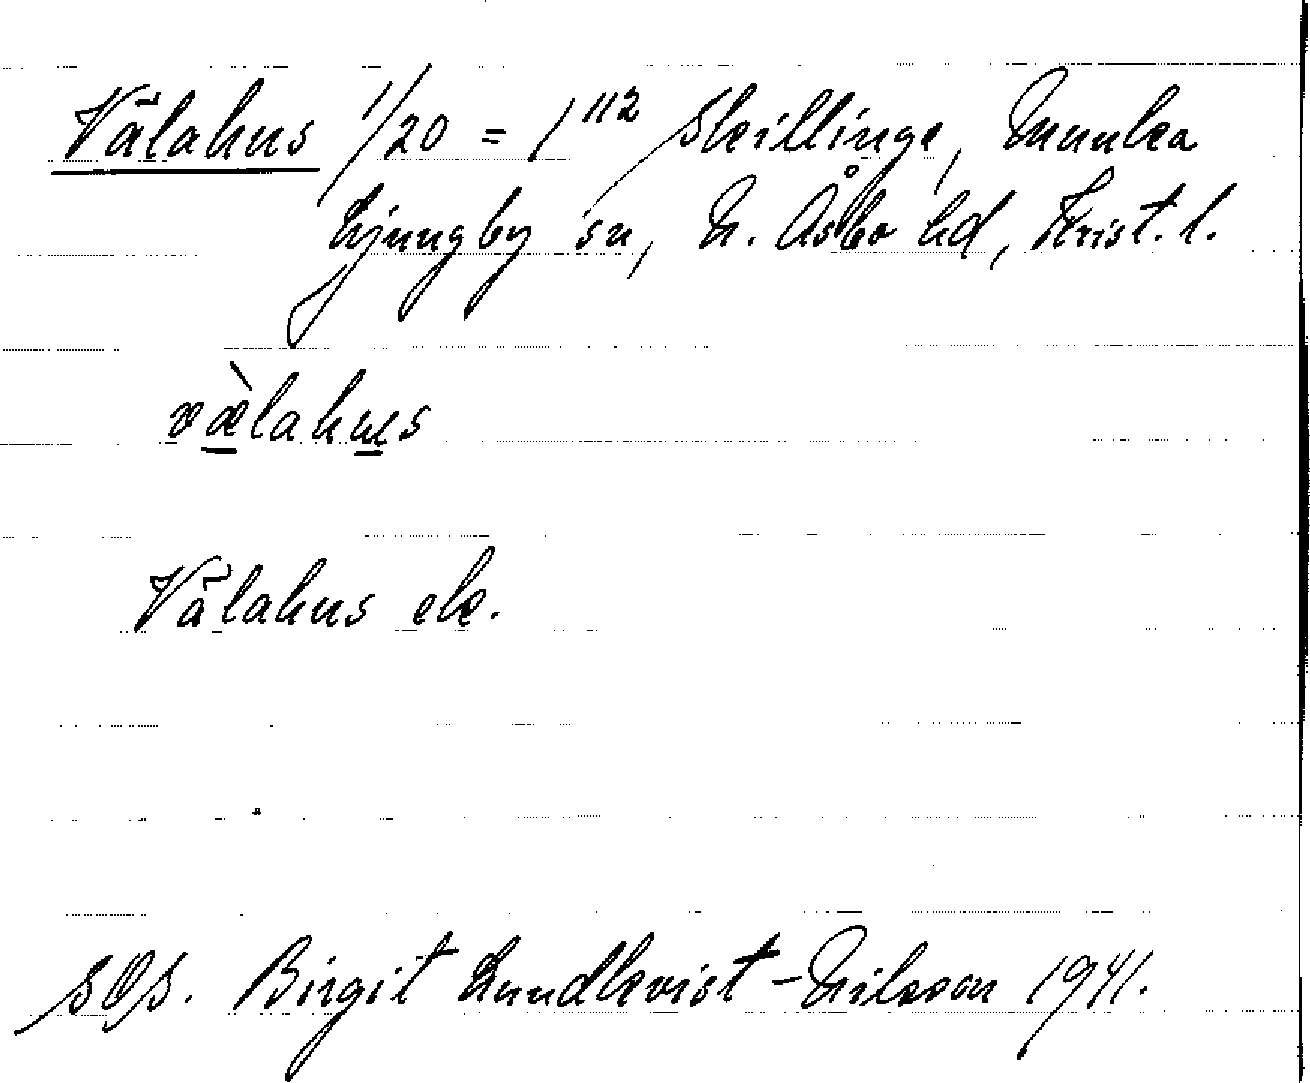 Välahus 1/20 = 1¹¹² Skillinge, Munka
Ljungby sn, N. Åsbo hd, Krist. l.
væ̀lahus
Välahus ek.
SOS. Birgit Lundkvist-Nilsson 1941.